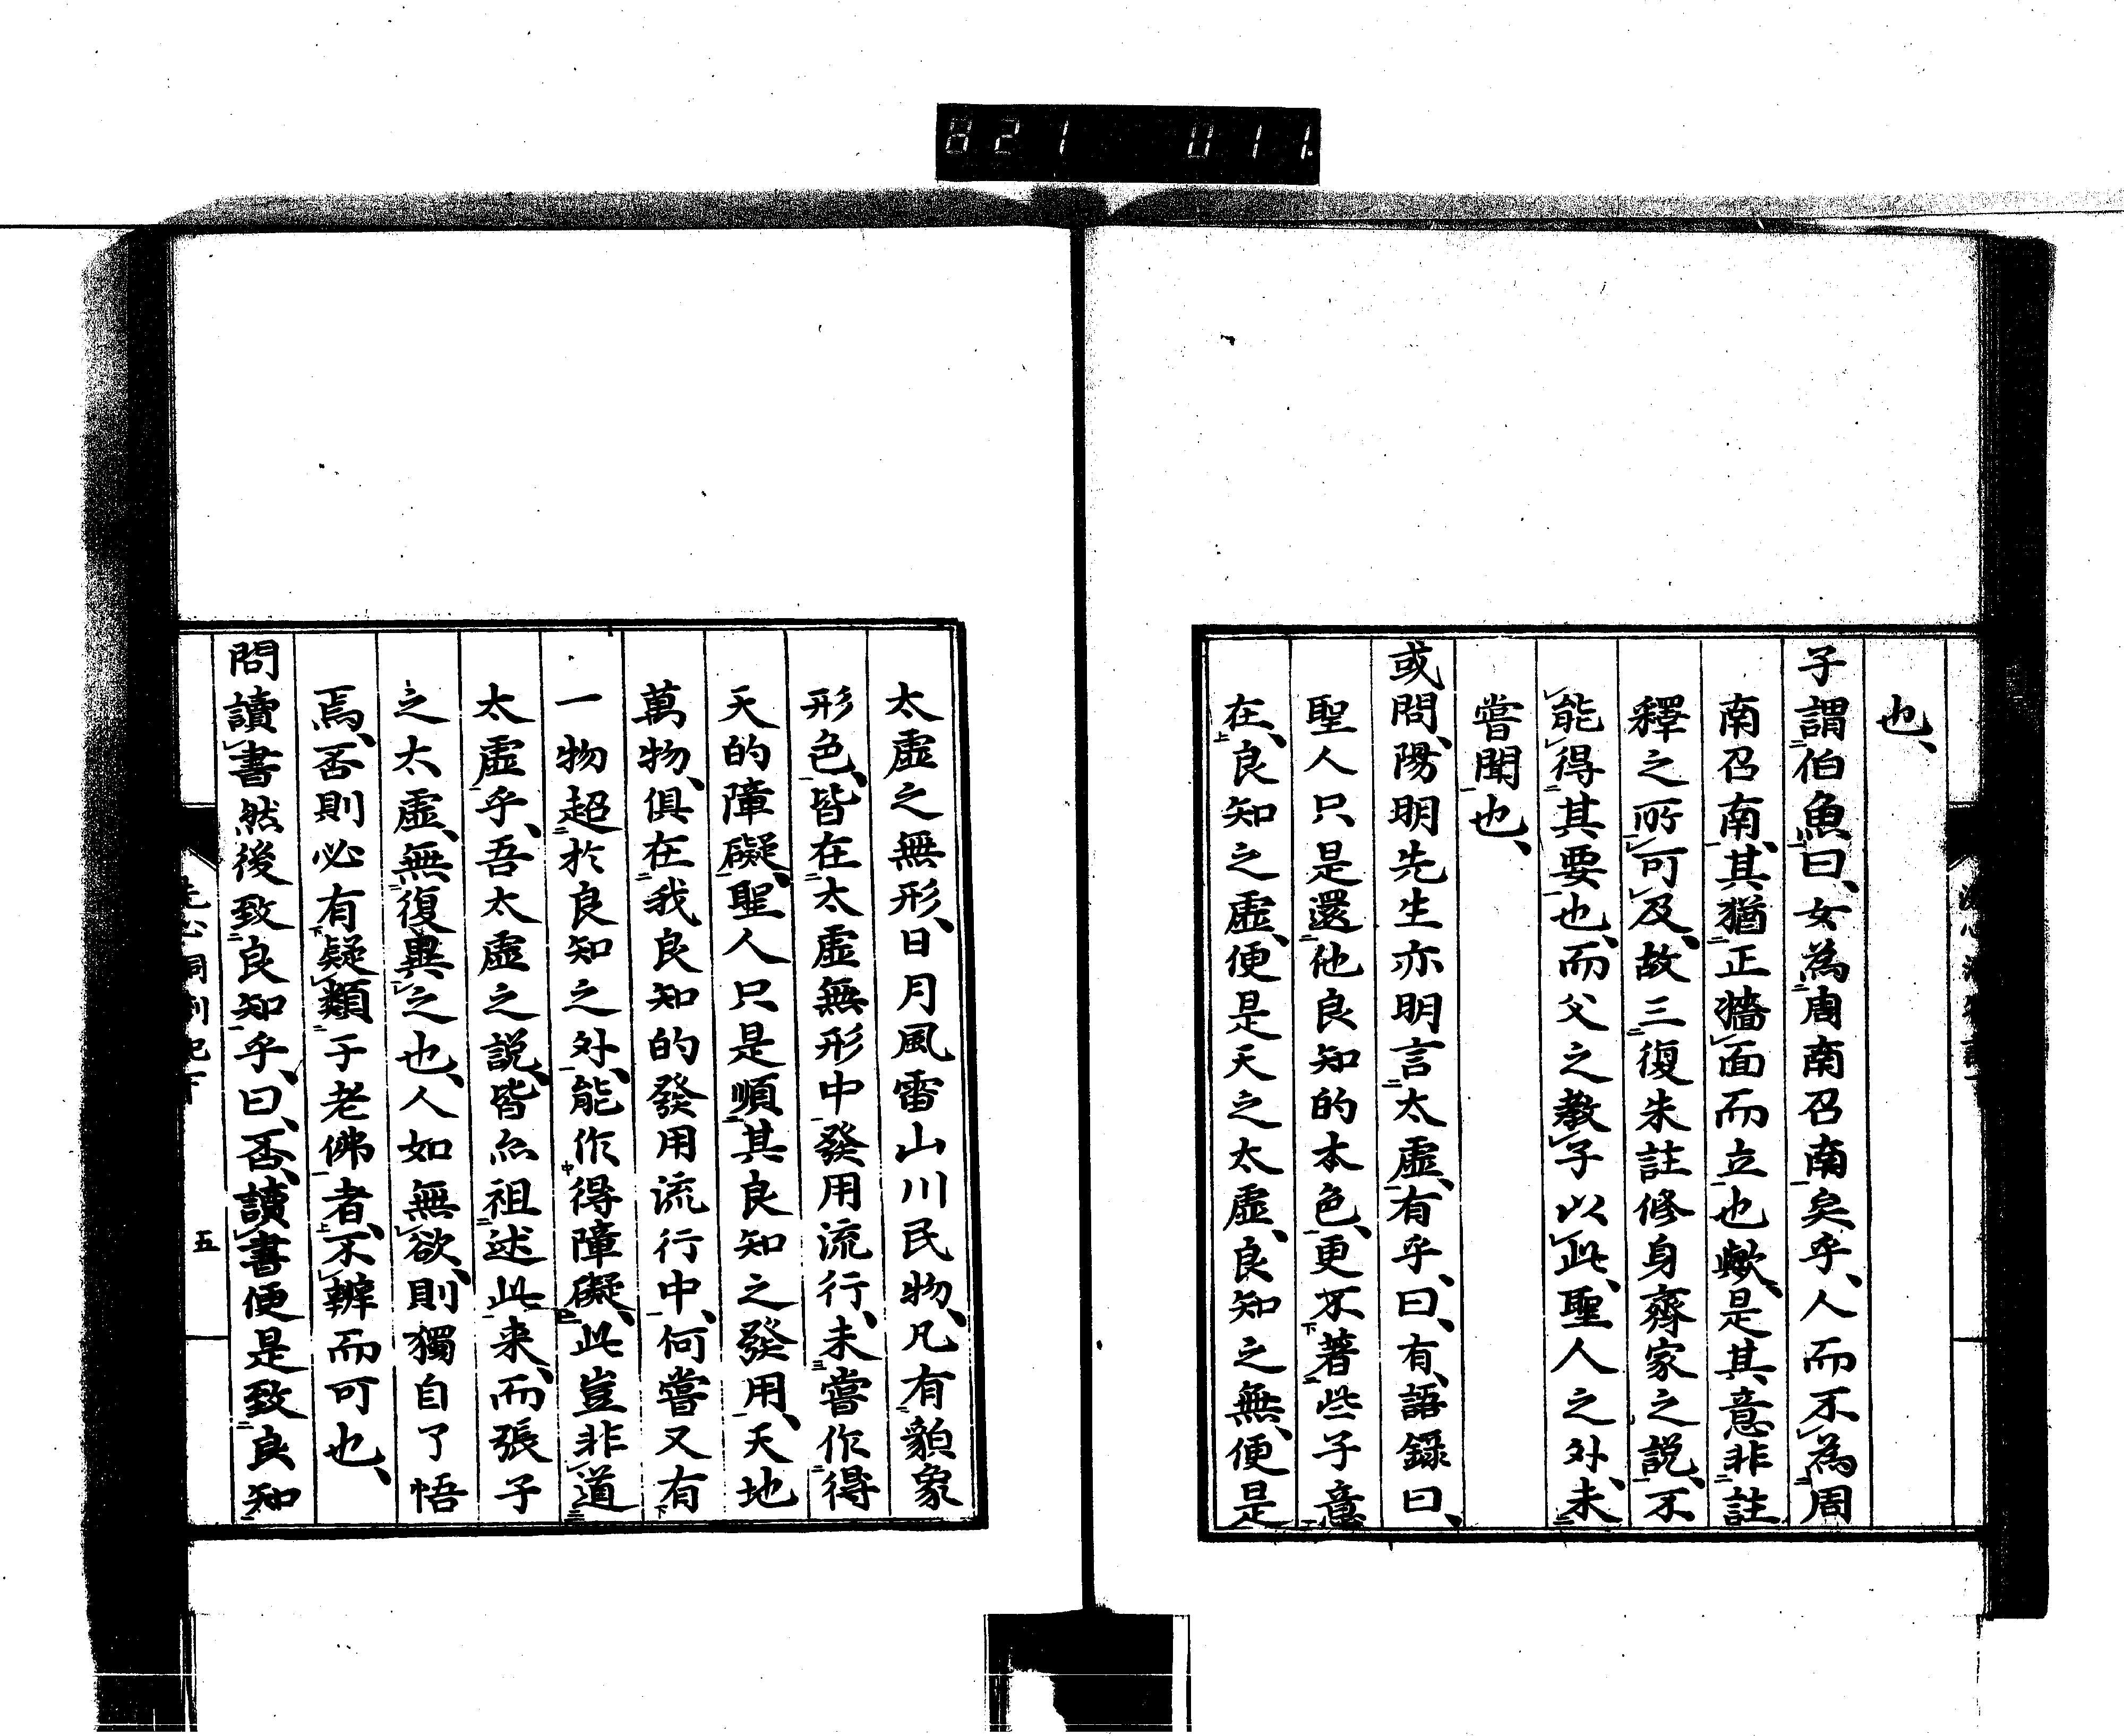 821 011.
也、
子謂伯魚曰、女為周南召南矣乎、人而不為周
南召南、其猶正牆面而立也歟、是其意非註
釋之所可及、故三復朱註修身齊家之説、不
能得其要也、而父之教子以此、聖人之外、未
嘗聞也、
或問、陽明先生亦明言太虛、有乎、曰、有、語錄曰、
聖人只是還他良知的本色、更不著些子意
在、良知之虛、便是天之太虛、良知之無、便是
太虛之無形、日月風雷山川民物、凡有貌象
形色、皆在太虛無形中發用流行、未嘗作得
天的障礙、聖人只是順其良知之發用、天地
萬物、俱在我良知的發用流行中、何嘗又有
一物超於良知之外、能作得障礙、此豈非道
太虛乎、吾太虛之説、皆尒祖述此来、而張子
之太虛、無復異之也、人如無欲、則獨自了悟
焉、否則必有疑類于老佛者、不辨而可也、
問讀書然後致良知乎、曰、否、讀書便是致良知
洞劄記下
五